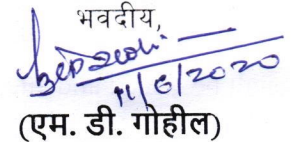 भवदीय,
11/6/2020
(एम. डी. गोहील)